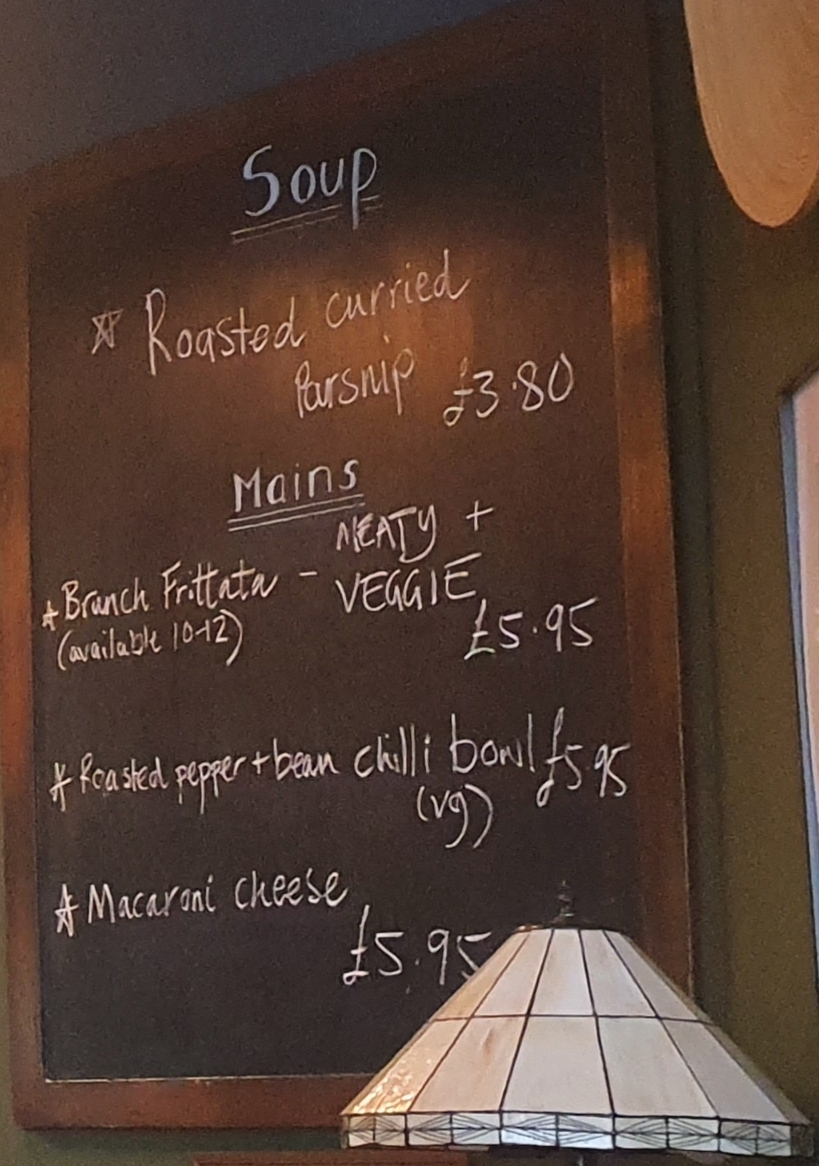 Soup
Roasted curried
Parsnip £3.80
Mains
Branch Frittata - MEATY +
(available 10-12) VEGGIE
£5.95
Roasted pepper + bean chilli bowl £5.95
(vg)
Macaroni cheese
£5.95